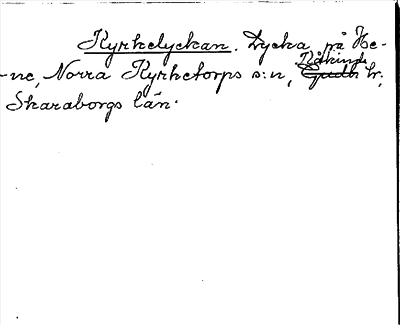 Kyrkelyckan. Lycka på He-
-ne, Norra Kyrketorps s:n, Kåkinds hr,
Skaraborgs län.